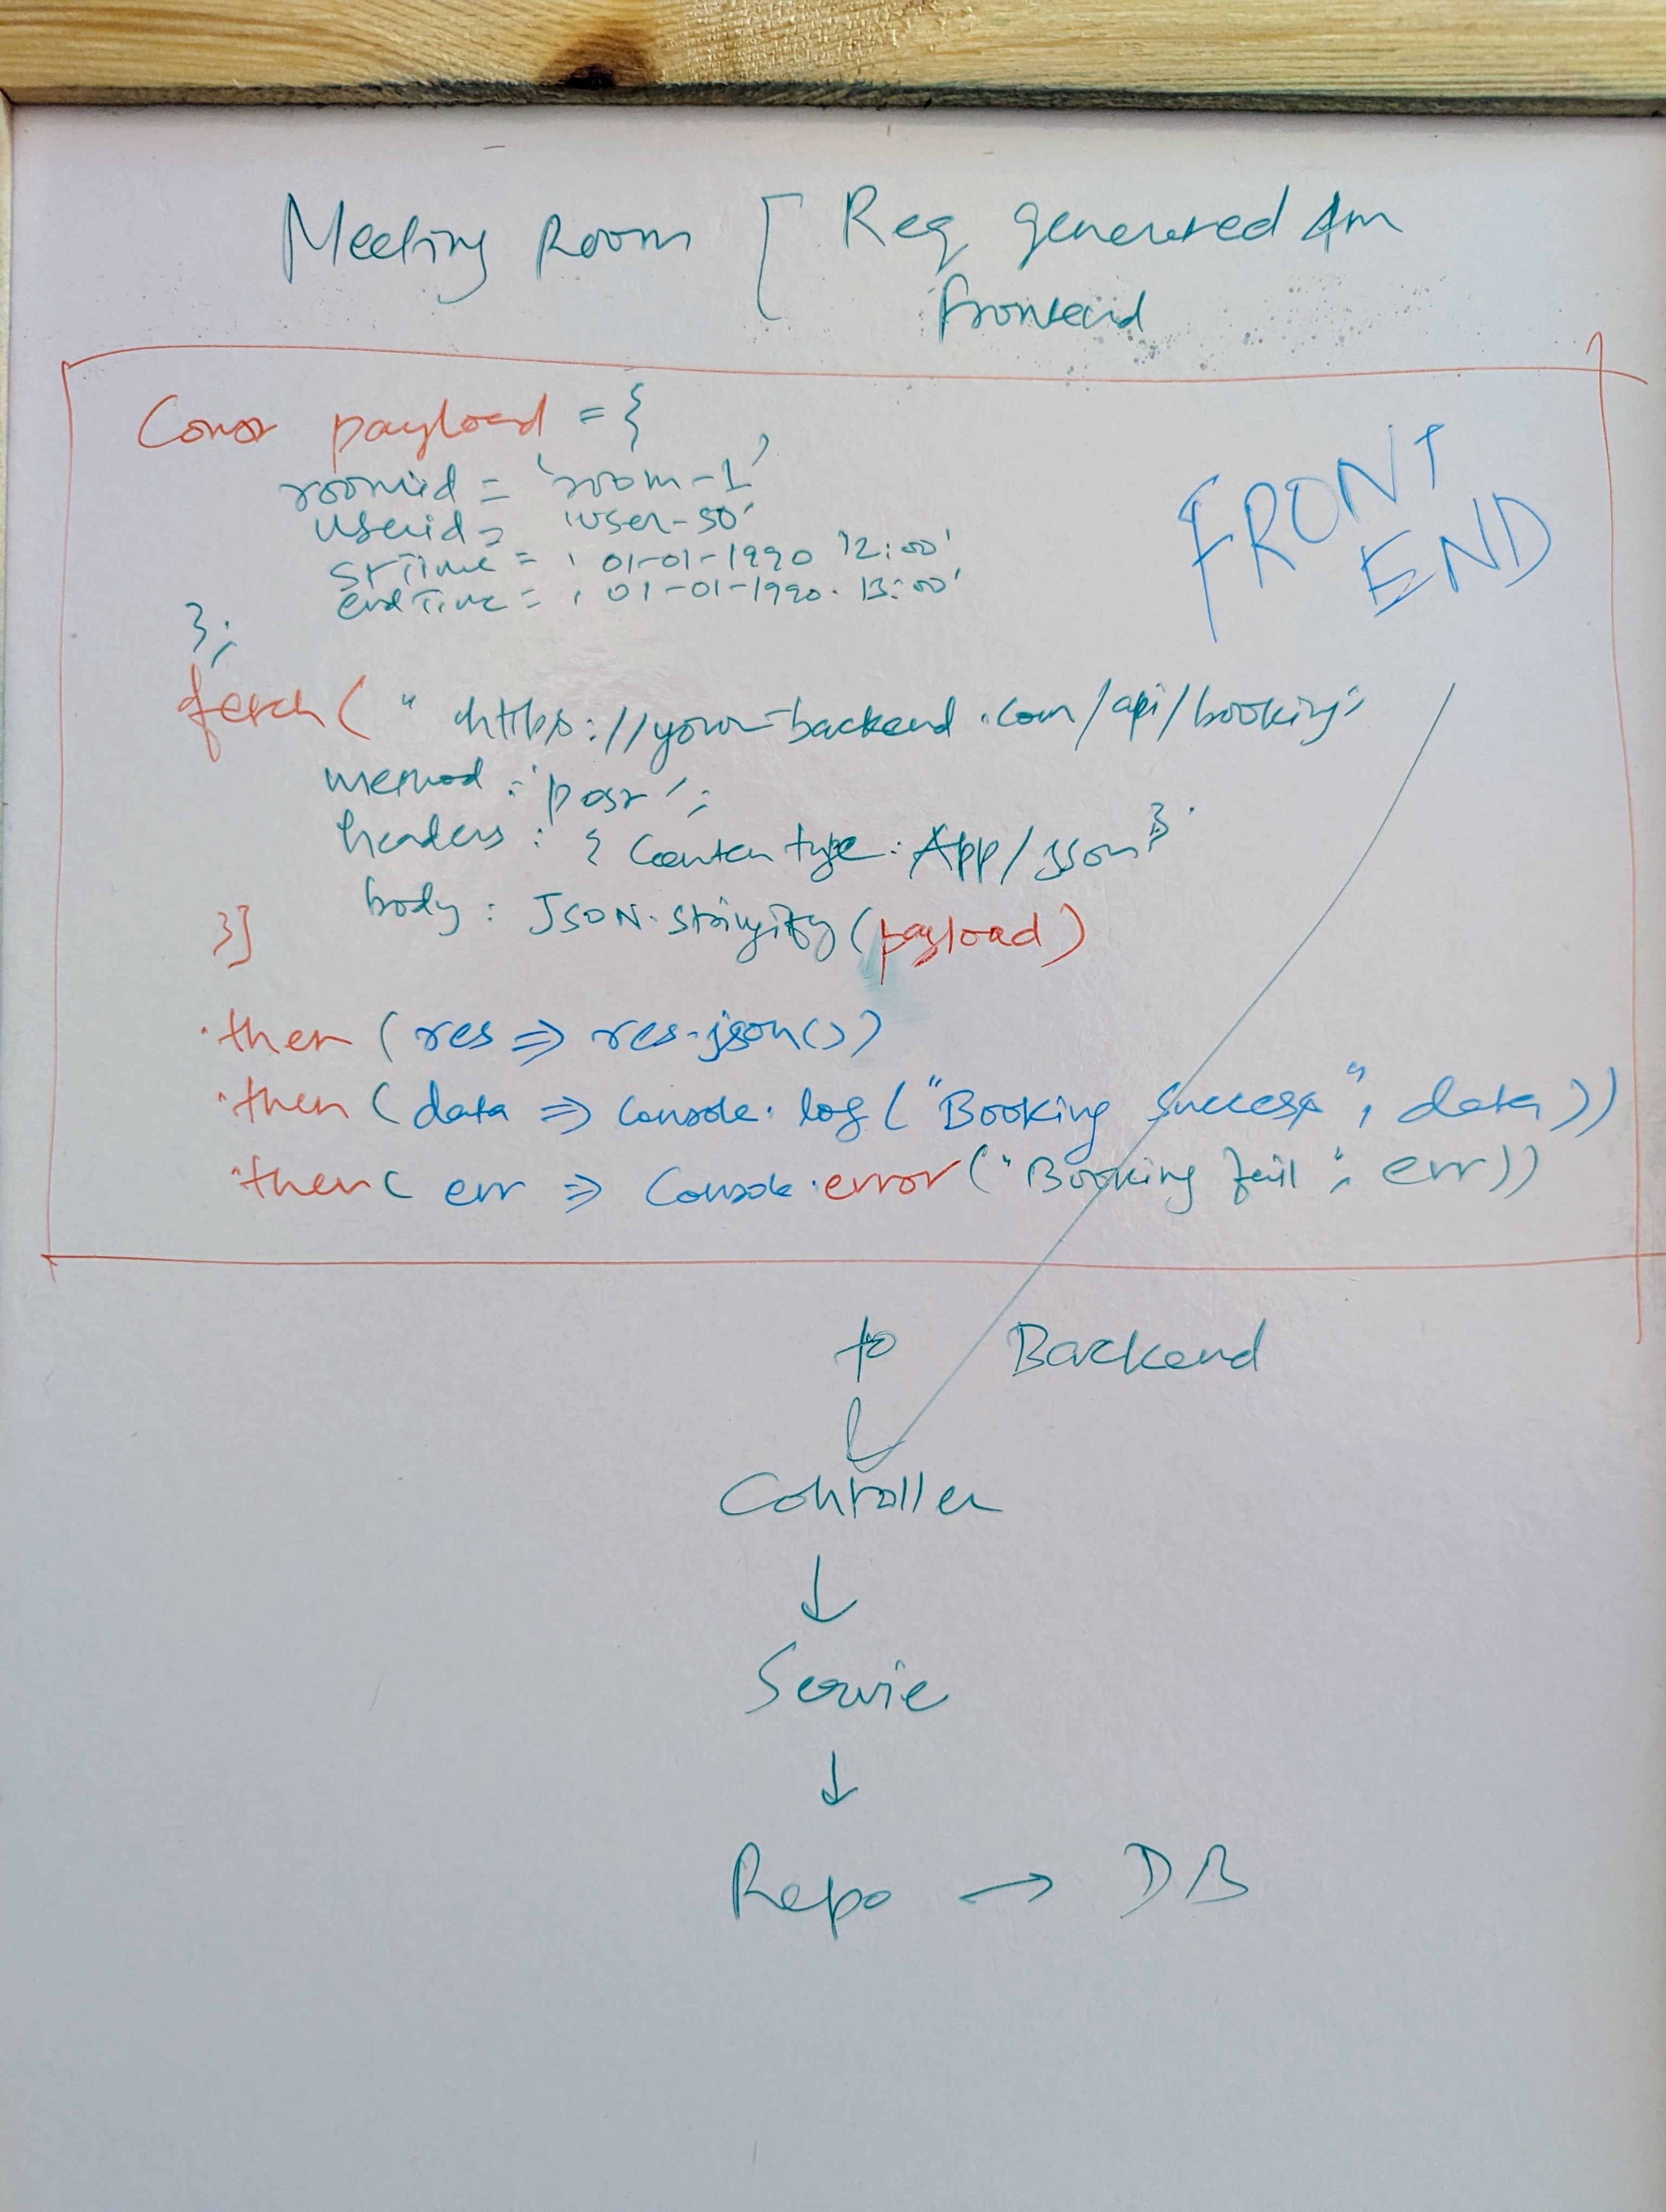 Meeting Room [ Req generated frm
frontend
Const payload = {
roomid = 'room-1'
userid = 'user-50'
StTime = '01-01-1990 12:00'
endTime = '01-01-1990. 13:00'
};
FRONT
END
fetch( " https://your-backend.com/api/booking;
method : 'post' ;
headers : { Conten type : App/json }
body : JSON.Stringify(payload)
}]
.then (res => res.json())
.then (data => console.log("Booking success", data))
.then ( err => Console.error("Booking fail", err))
to Backend
↓
Controller
↓
Servie
↓
Repo → DB